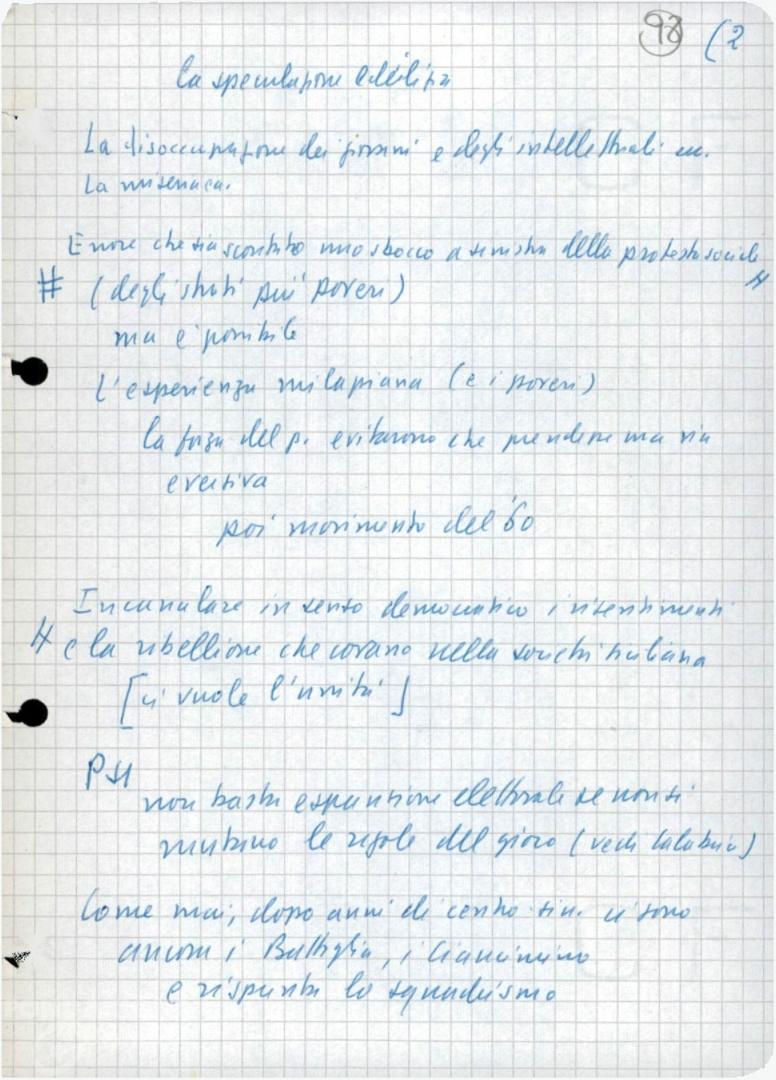 98 (2
La speculazione edilizia
La disoccupazione dei giovani e degli intellettuali
La
Errore che sia scontato uno sbocco a sinistra della protesta sociale
# (degli strati più poveri)
ma è possibile
L'esperienza (e i poveri)
la forza del p. evitarono che prendesse una via
eversiva
poi movimento del '60
Incanalare in senso democratico i risentimenti
e la ribellione che covano nella società italiana
[ci vuole l'unità]
PSI
non basta espansione elettorale se non si
mutano le regole del gioco (vedi Calabria)
Come mai, dopo anni di centro-sin. ci sono
ancora i Battaglia, i Ciancimino
e rispunta lo squadrismo